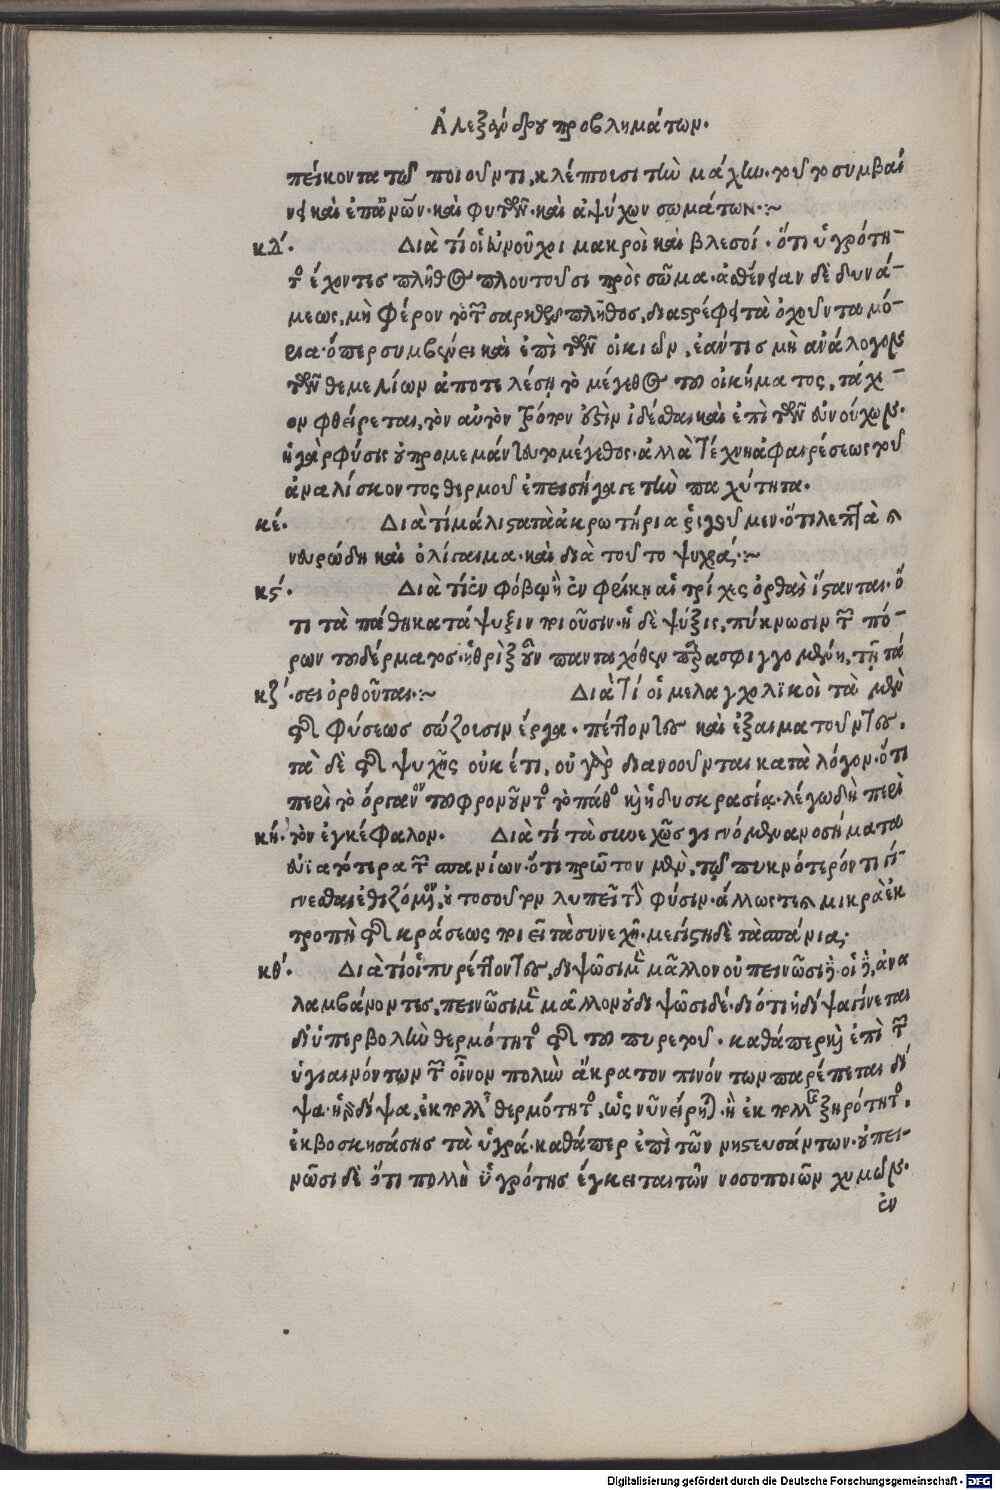 Ἀλεξάνδρου προβλημάτων.
πείκοντα τῷ ποιοῦντι, κλέπτουσι τὴν μάχην. τοῦτο συμβαί
νει καὶ ἐπὶ ἀνῶν. καὶ φυτῶν. καὶ ἀψύχων σωμάτων.:~
κδ´. Διὰ τί οἱ εὐνοῦχοι μακροὶ καὶ βλεσοί. ὅτι ὑγρότη-
τος ἔχοντες πλῆθος πλουτοῦσι πρὸς σῶμα. ἀσθένειαν δὲ δυνά-
μεως, μὴ φέρον τὸ τῆς σαρκὸς πλῆθος, διαστρέφει τὰ ὀχοῦντα μό-
ρια. ὅπερ συμβαίνει καὶ ἐπὶ τῶν οἰκιῶν, ἐὰν τις μὴ ἀνάλογον
τῶν θεμελίων ἀποτελέσῃ τὸ μέγεθος τοῦ οἰκήματος, τάχι-
ον φθείρεται, τὸν αὐτὸν τρόπον ἔξεστιν ἰδέσθαι καὶ ἐπὶ τῶν εὐνούχων.
ἡ γὰρ φύσις οὐ προμεμάντευτο μέγεθος. ἀλλὰ τέχνη ἀφαιρέσεως τοῦ
ἀναλίσκοντος θερμοῦ ἐπεισήγαγε τὴν παχύτητα.
κέ. Διὰ τί μάλιστα τὰ ἀκρωτήρια ῥιγοῦμεν. ὅτι λεπτὰ καὶ
νευρώδη καὶ ὀλίγαιμα. καὶ διὰ τοῦτο ψυχρά.:~
κϛ´. Διὰ τί ἐν φόβῳ ἢ ἐν φρίκῃ αἱ τρίχες ὀρθαὶ ἵστανται. ὅ
τι τὰ πάθη κατάψυξιν ποιοῦσιν. ἡ δὲ ψύξις, πύκνωσιν τῶν πό-
ρων τοῦ δέρματος. ἡ θρὶξ οὖν πανταχόθεν περιασφιγγομένη, τῇ τά
κζ´. σει ὀρθοῦται.:~ Διὰ τί οἱ μελαγχολικοὶ τὰ μὲν
τῆς φύσεως σώζουσιν ἔργα. πέττονται καὶ ἐξαιματοῦνται.
τὰ δὲ τῆς ψυχῆς οὐκ έτι. οὐ γὰρ διανοοῦνται κατὰ λόγον. ὅτι
περὶ τὸ όργανον τοῦ φρονοῦντος τὸ πάθος καὶ ἡ δυσκρασία. λέγω δὴ περὶ
κή. τὸν ἐγκέφαλον. Διὰ τί τὰ συνεχῶς γινόμενα νοσήματα
εὐϊατότερα τῶν σπανίων. ὅτι πρῶτον μὲν, τῷ πυκνότερόν τι γί-
νεσθαι ἐθιζόμενον, οὐ τοσοῦτον λυπεῖ τὴν φύσιν. ἄλλως τε καὶ μικρὰ ἐκ
τροπὴ τῆς κράσεως ποιεῖ τὰ συνεχῆ. μεγίστη δὲ τὰ σπάνια;
κθ´. Διὰ τί οἱ πυρέττοντες, διψῶσι μὲν μᾶλλον οὐ πεινῶσι δὲ. οἱ δὲ, ἀνα
λαμβάνοντες, πεινῶσι μὲν μᾶλλον οὐ διψῶσι δέ. διότι ἡ δίψα γίνεται
δι᾽ ὑπερβολὴν θερμότητος τῆς τοῦ πυρετοῦ. καθάπερ καὶ ἐπὶ τῶν
ὑγιαινόντων τῶν οἶνον πολὺν ἄκρατον πινόντων παρέπεται δί
ψα. ἡ γὰρ δίψα, ἐκ πολλῆς θερμότητος, ὡς νῦν είρηται. ἢ ἐκ πολλῆς ξηρότητος.
ἐκβοσκησάσης τὰ ὑγρά. καθάπερ ἐπὶ τῶν νηστευσάντων. οὐ πει-
νῶσι δὲ ὅτι πολλὴ ὑγρότης έγκειται τῶν νοσοποιῶν χυμῶν.
ἐν
Digitalisierung gefördert durch die Deutsche Forschungsgemeinschaft - DFG